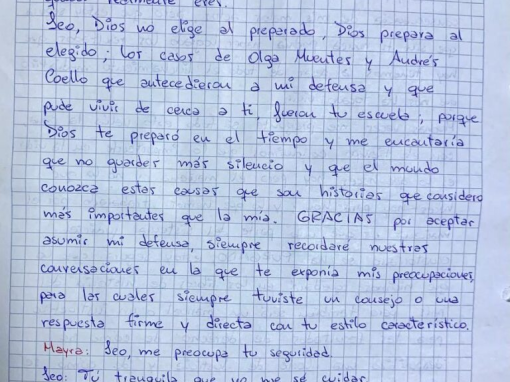 realmente eres.
Leo, Dios no elige al preparado, Dios prepara al
elegido; los casos de Olga Muentes y Andrés
Coello que antecedieron a mi defensa y que
pude vivir de cerca a ti, fueron tu escuela, porque
Dios te preparó en el tiempo y me encantaría
que no guardes más silencio y que el mundo
conozca estas causas que son historias que considero
más importantes que la mia. GRACIAS por aceptar
asumir mi defensa, siempre recordaré nuestras
conversaciones en la que te exponia mis preocupaciones,
para las cuales siempre tuviste un consejo o una
respuesta firme y directa con tu estilo característico.
Mayra: Leo, me preocupa tu seguridad
Leo: Tú tranquila que yo me sé cuidar